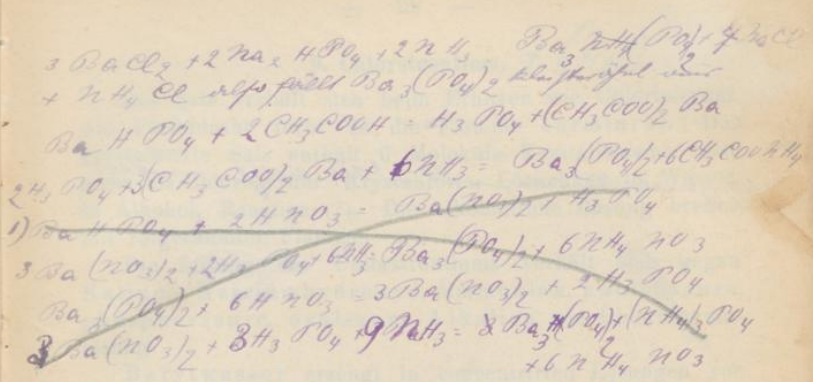 3 BaCl2 + 2 Na2 HPO4 + 2 NH3 Ba3 (PO4)2 + 4 NaCl
+ NH4 Cl also fällt Ba3(PO4)2
Ba H PO4 + 2 CH3COOH = H3 PO4 + (CH3COO)2 Ba
2 H3 PO4 + 3(CH3 COO)2 Ba + 6 NH3 = Ba3(PO4)2 + 6 CH3 COO NH4
1) Ba H PO4 + 2 H NO3 = Ba(NO3)2 + H3 PO4
3 Ba (NO3)2 + 2 H3 PO4 + 6 NH3 = Ba3(PO4)2 + 6 NH4 NO3
Ba3(PO4)2 + 6 H NO3 = 3 Ba(NO3)2 + 2 H3 PO4
3 Ba(NO3)2 + 3 H3 PO4 + 9 NH3 = Ba3(PO4)2 + (NH4)3 PO4
+ 6 NH4 NO3